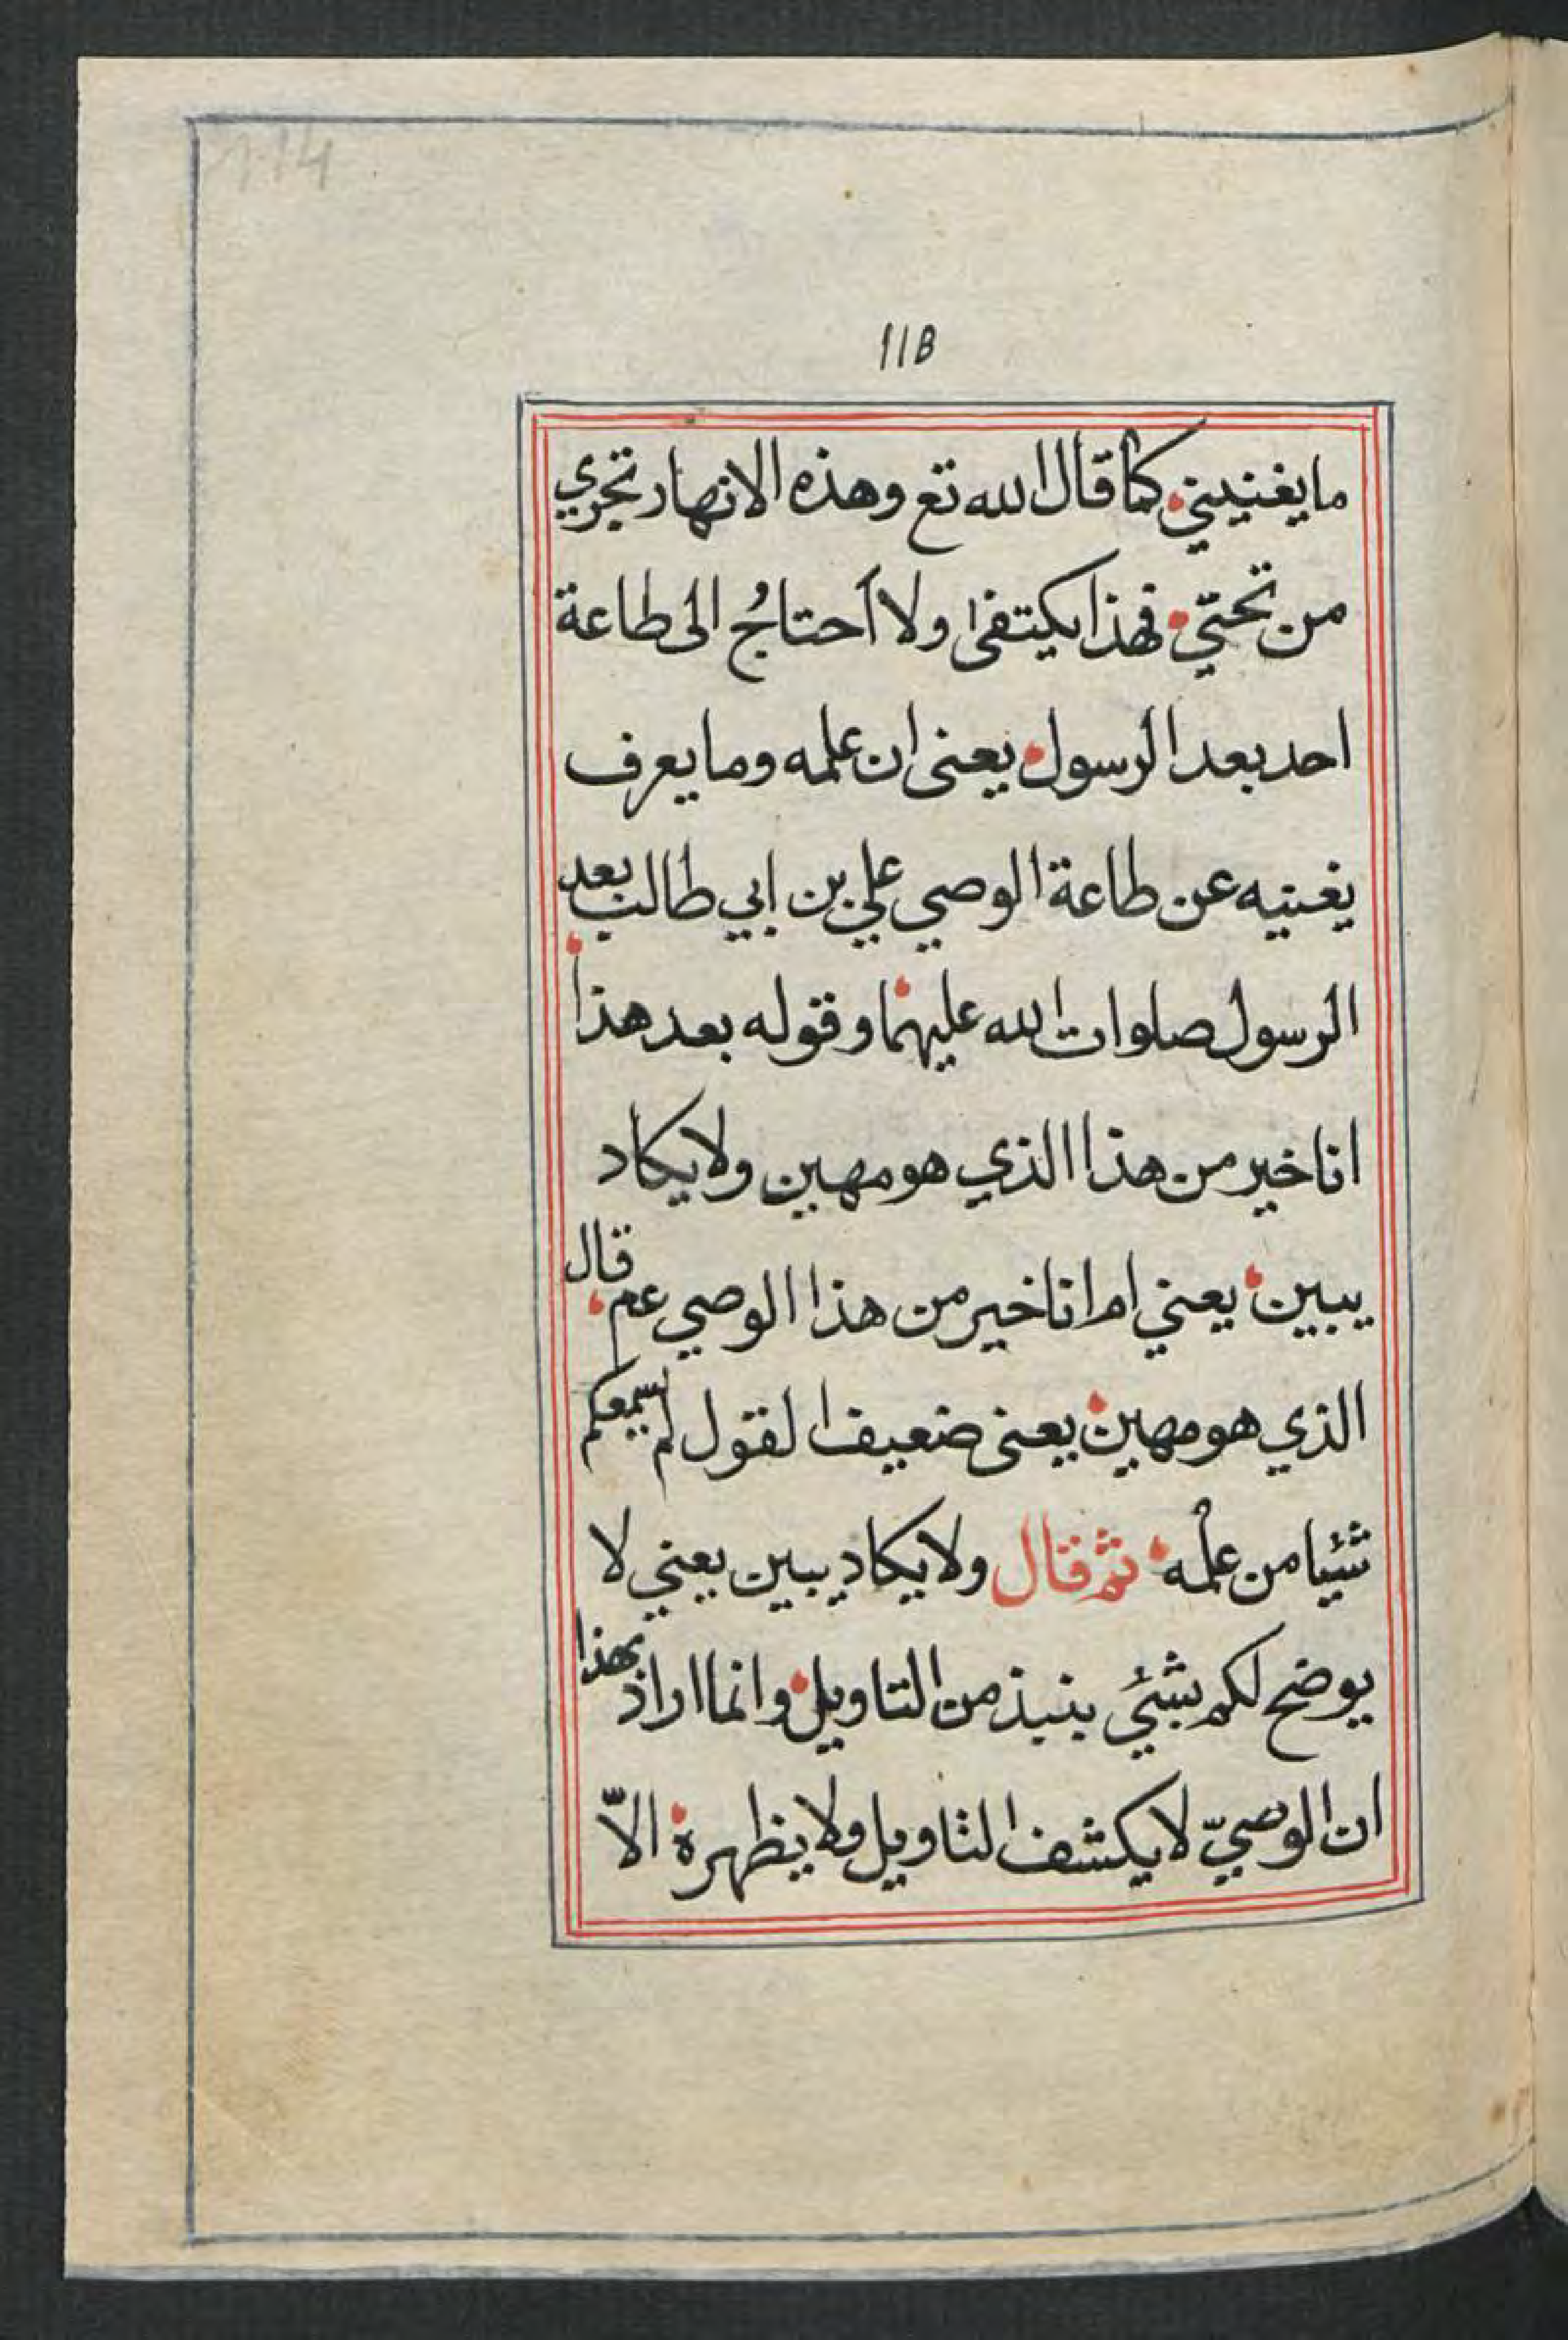 114
١١٨
ما يغنيني كما قال الله تع وهذه الانهار تجري
من تحتي فهذا يكتفى ولا أحتاجُ الى طاعة
احد بعد الرسول يعنى ان علمه وما يعرف
يغنيه عن طاعة الوصي علي بن ابي طالب بعد
الرسول صلوات الله عليهما وقوله بعد هذا
انا خير من هذا الذي هو مهين ولا يكاد
يبين يعني ام انا خير من هذا الوصي عم قال
الذي هو مهين يعنى ضعيف القول لم يسمعكم
شئيا من علمه ثم قال ولا يكاد يبين يعني لا
يوضح لكم بشئي ينبذ من التاويل وانما اراد بهذا
ان الوصيّ لا يكشف التاويل ولا يظهره الاّ